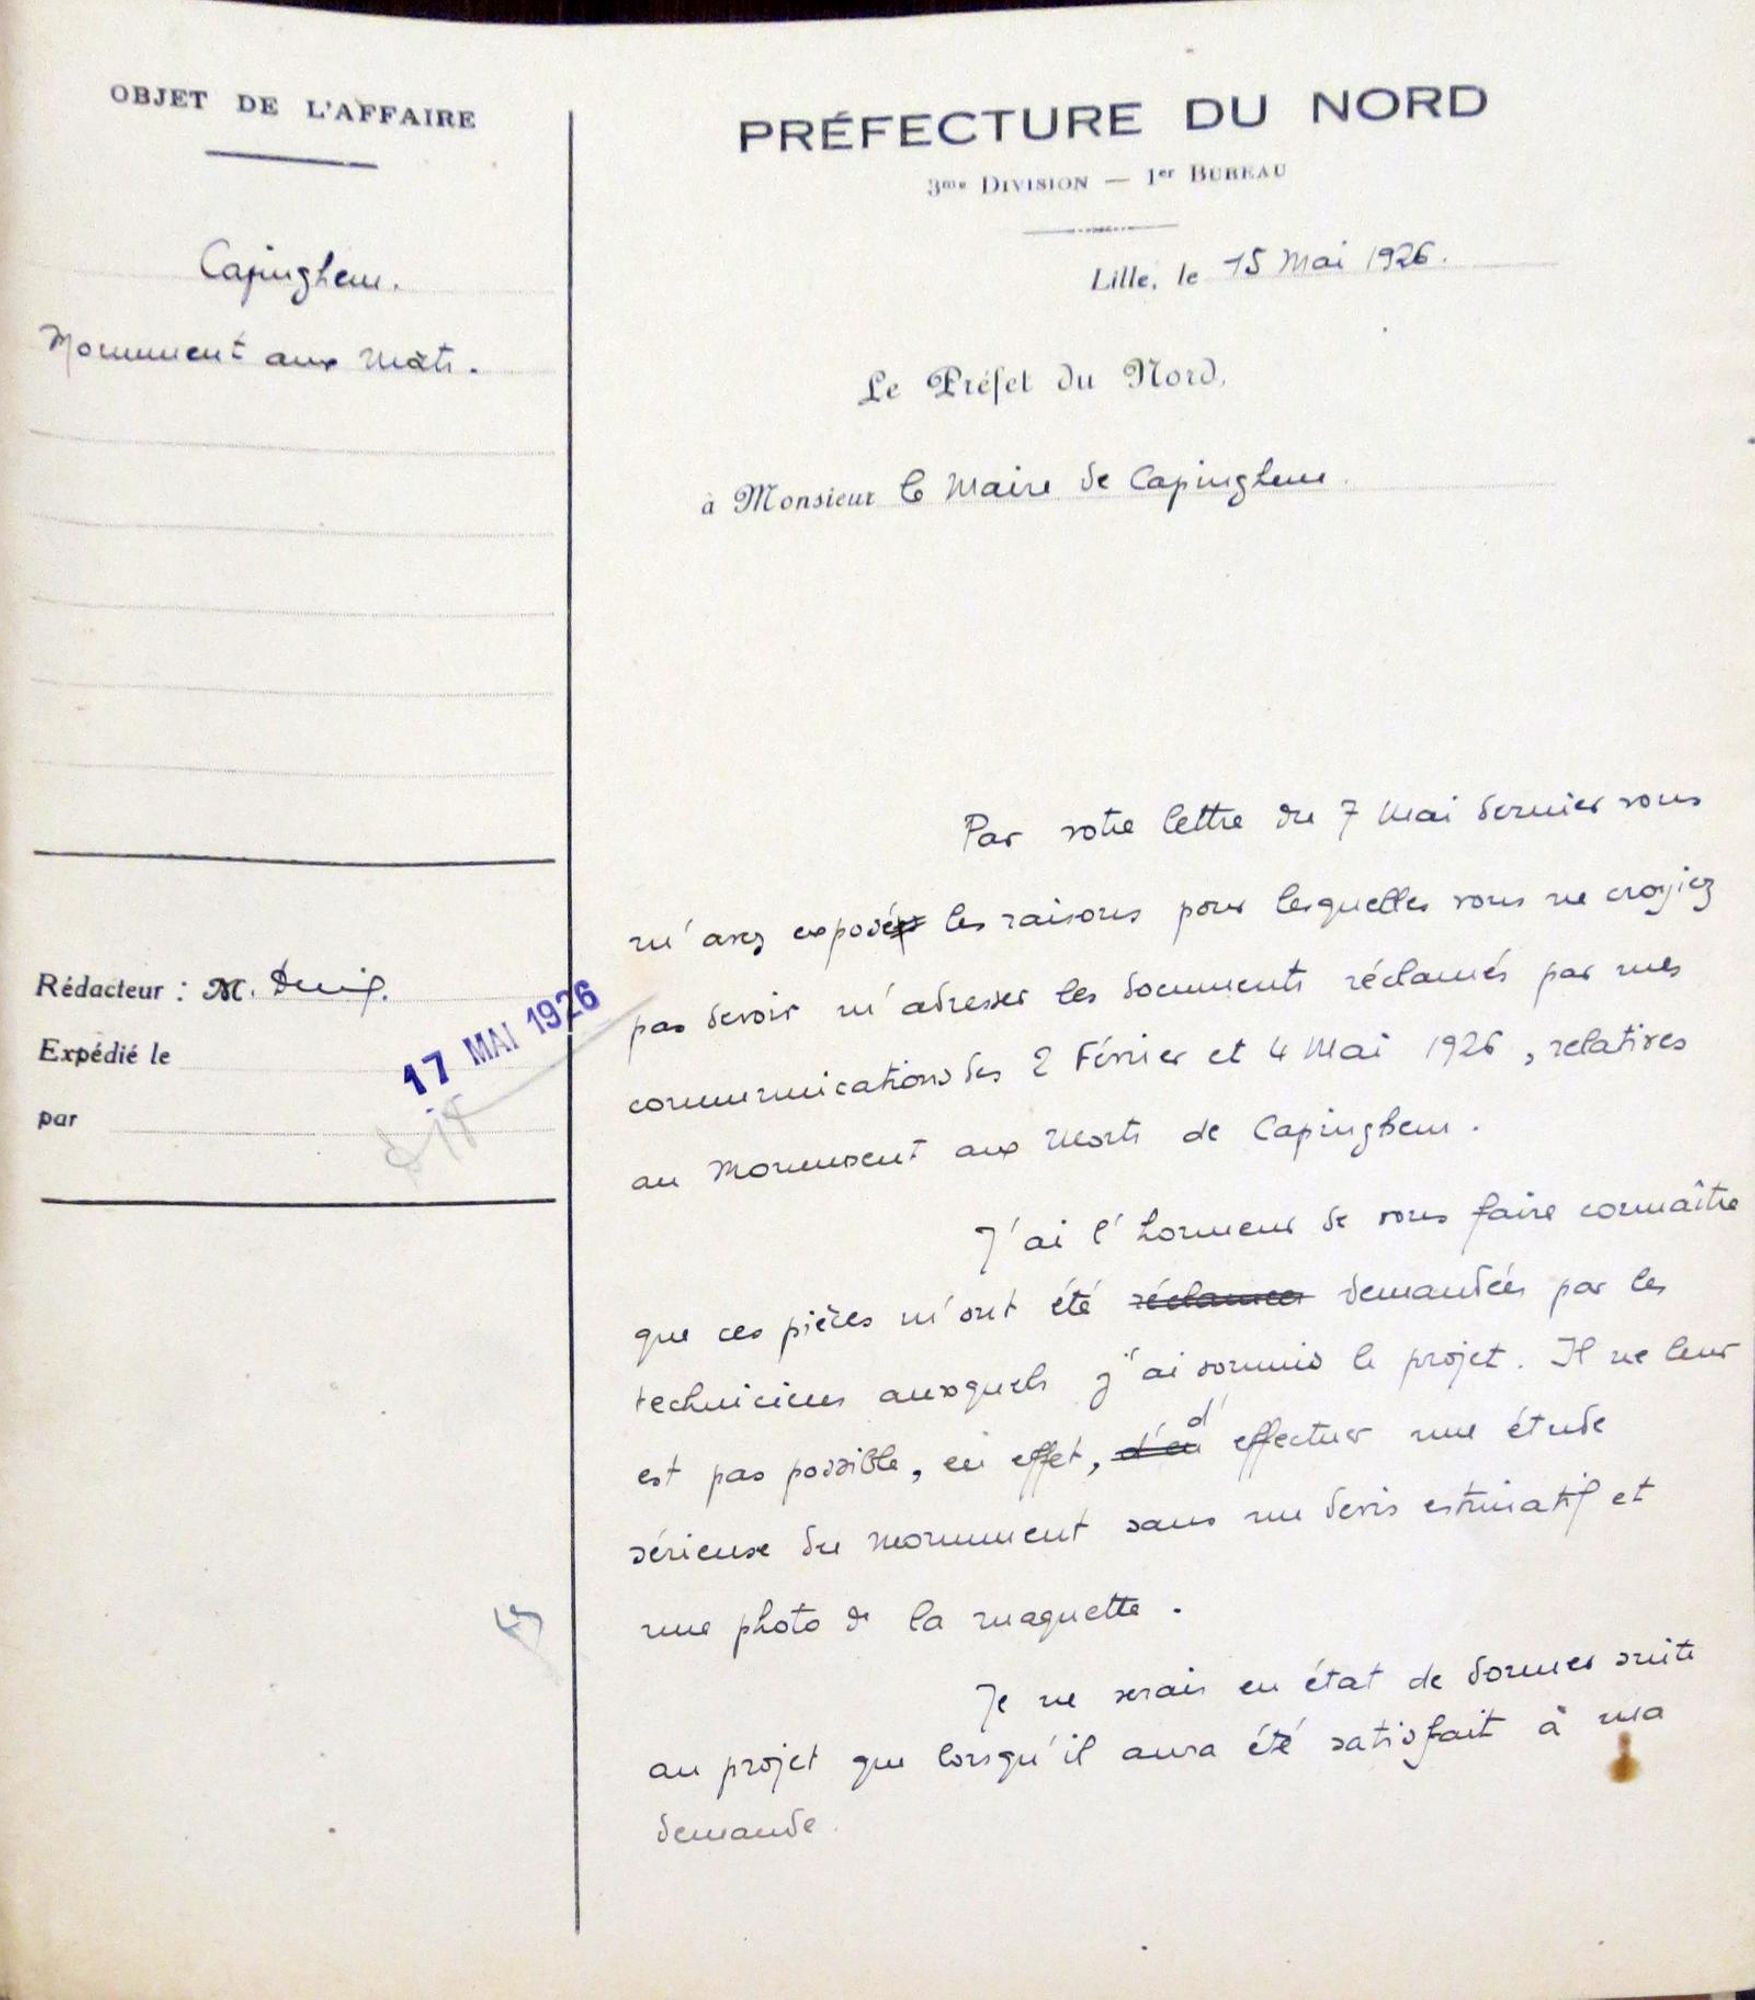 OBJET DE L'AFFAIRE
Capinghem.
Monument aux Morts.
Rédacteur : M.
Expédié le
17 MAI 1926
par
PRÉFECTURE DU NORD
3me DIVISION — 1er BUREAU
Lille, le 15 Mai 1926.
Le Préfet du Nord,
à Monsieur le Maire de Capinghem.
Par votre lettre du 7 Mai dernier vous
m'avez exposé les raisons pour lesquelles vous ne croyiez
pas devoir m'adresser les documents réclamés par mes
communications des 2 Février et 4 Mai 1926, relatives
au Monument aux Morts de Capinghem.
J'ai l'honneur de vous faire connaître
que ces pièces m'ont été réclamées demandées par les
techniciens auxquels j'ai soumis le projet. Il ne leur
est pas possible, en effet, d'en d'effectuer une étude
sérieuse du monument sans un devis estimatif et
une photo de la maquette.
Je ne serais en état de donner suite
au projet que lorsqu'il aura été satisfait à ma
demande.